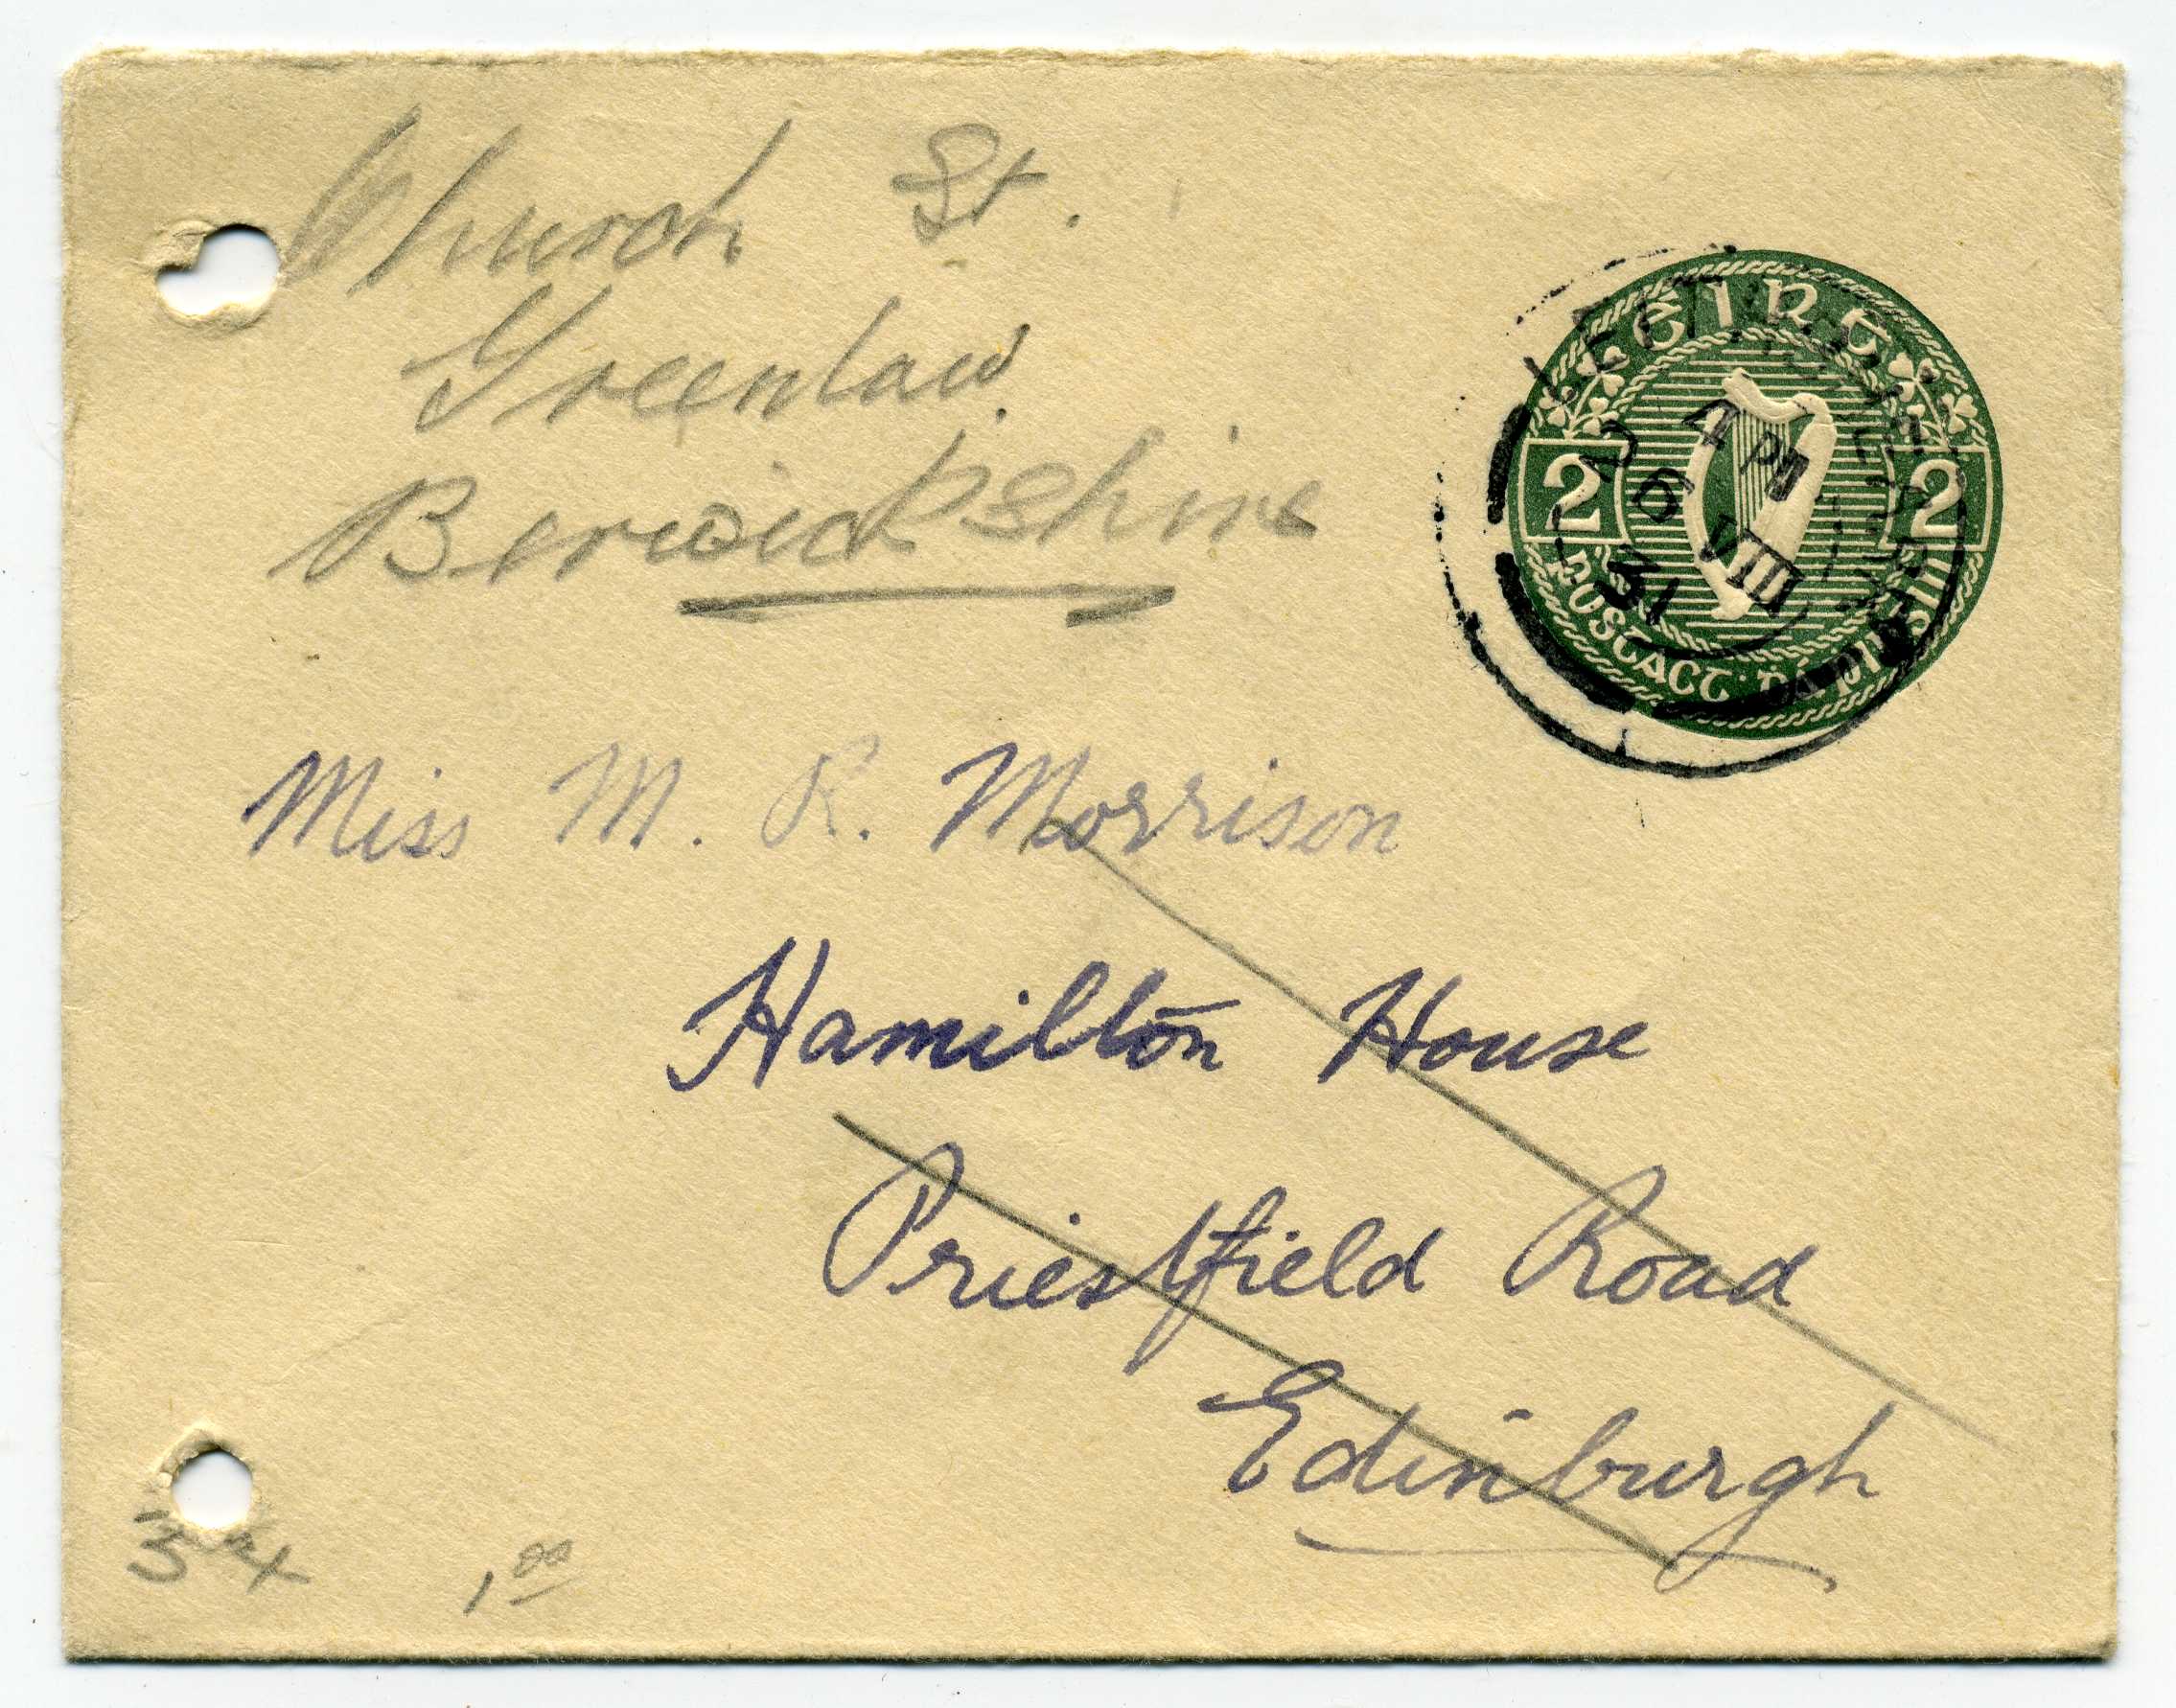 Church St.
Greenlaw.
Berwickshire
éire
2 2
4 PM
6 VIII
31
Miss M. R. Morrison
Hamilton House
Priestfield Road
Edinburgh
1 00